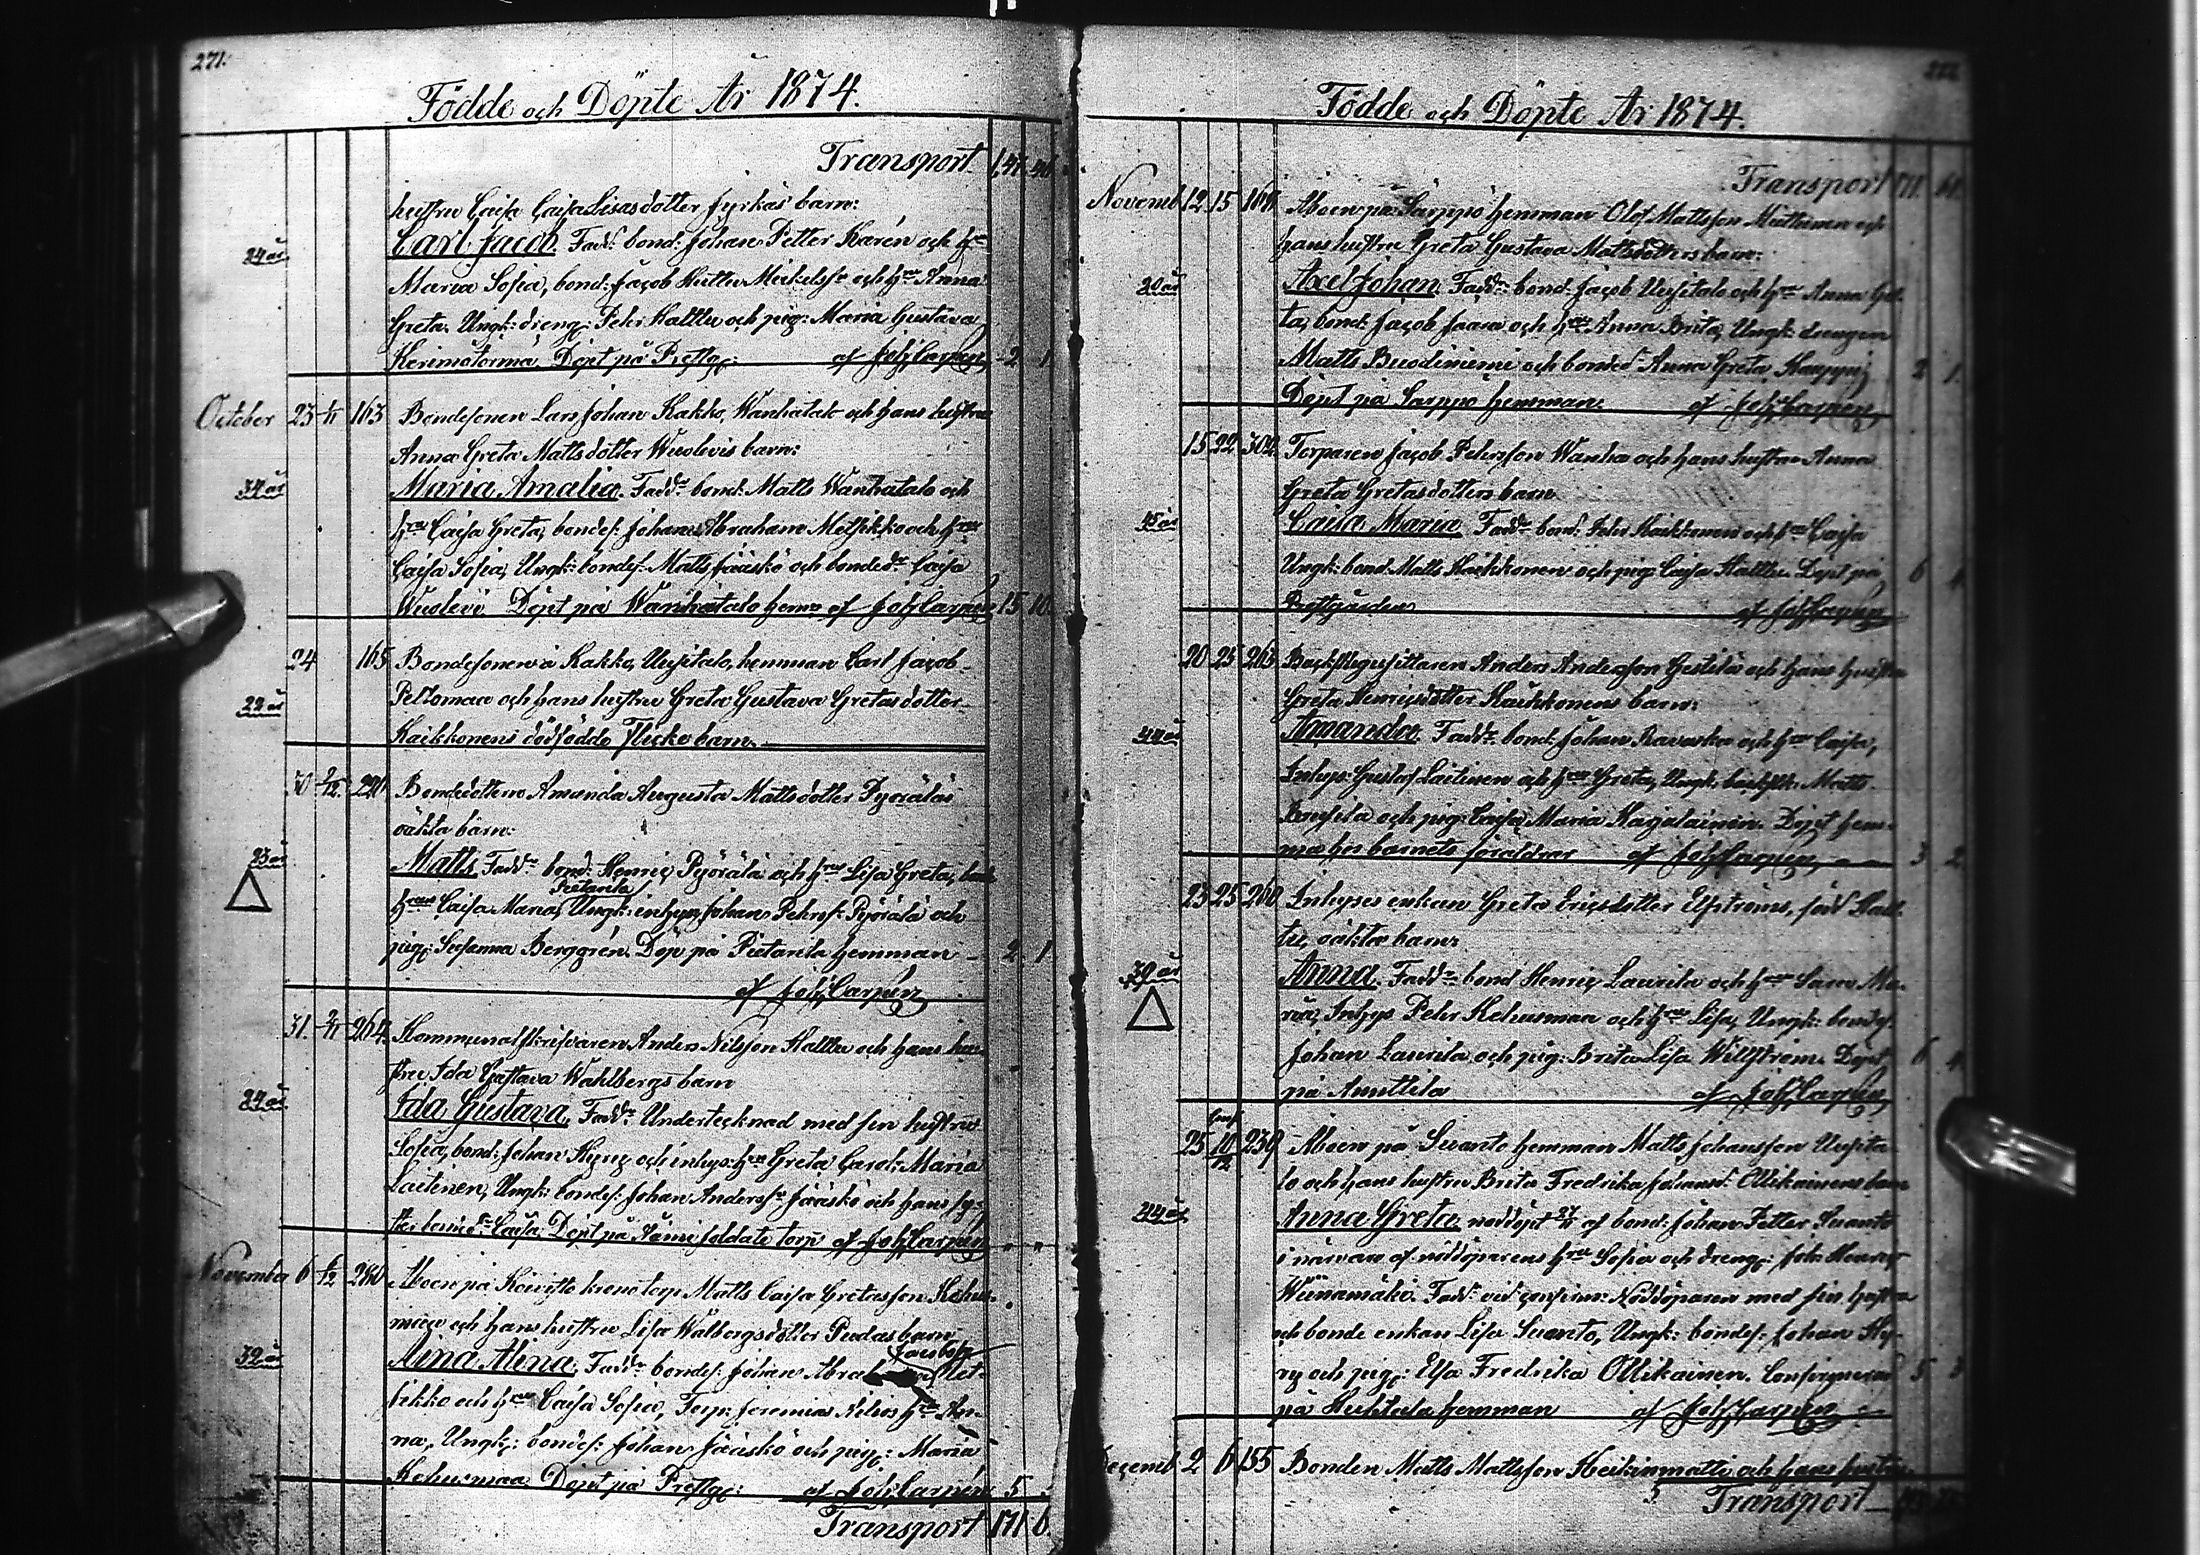 271.
Födde och Döpte År 1874.
Transport 1,47 40
hustru Caisa Caisa Lisasdotter Jyrkäs barn:
24 år
Carl Jacob. Fadd: bond: Johan Petter Karén och hru
Maria Sofia, bond: Jacob Mickelss: och hru Anna
Greta. Ungk: dreng: Pehr Kalttu och pig: Maria Gustava
Döpt på Prestg: af Joh Carpén 2 1
October 23 1/11 163 Bondesonen Lars Johan Kakko, Wanhatalo och hans hustru
Anna Greta Mattsdotter Wuolevis barn:
34 år
Maria Amalia. Fadd: bond: Matts Wanhatalo och
hru Caisa Greta, bondes: Johan Abraham Metsikko och hru
Caisa Sofia, Ungk: bondes: Matts Jääskö och bonded: Caisa
Wuolevi Döpt på Wanhatalo hemn af Joh Carpén 15 10
24 165 Bondesonen å Kakko, Uusitalo, hemman Carl Jacob
Peltomaa och hans hustru Greta Gustava Gretasdotter
22 år
Kaikkonens dödfödde Flicko barn.
30 2/12 220 Bondedottern Amanda Augusta Mattsdotter Pyöräläs
oäkta barn:
23 år
Matts Fadd: bond: Henric Pyörälä och hru Lisa Greta, bond
Pietarila
hrun Caisa Maria, Ungk: inhys: Johan Pehrss: Pyörälä och
pig: Susanna Berggrén. Döp på Pietarila hemman 2 1
af Joh Carpén
31. 2/11 264. Kommunalskrifvaren Anders Nilsson Kalttu och hans hu-
stru Ida Gustava Wahlbergs barn
24 år
Ida Gustava. Fadd: Undertecknad med sin hustru
Sofia, bond: Johan Hyry och inhys: hru Greta Carol: Maria
Laitinen, Ungk: bondes: Johan Anderss: Jääskö och hans sy-
ster bonded: Caisa. Döpt på soldats torp af Joh Carpén
November 6 6/12 280 Åboen på Koivisto kronotorp Matts Caisa Gretasson Kehus-
maa och hans hustru Lisa Walborgsdotter Pudas barn
32 år
Mina Alina. Fadd: bondes: Johan Met-
Jacobss:
sikko och hru Caisa Sofia, Torp: Jeremias Nilsos hru An-
na, Ungk: bondes: Johan Jääskö och pig: Maria
Kehusmaa. Döpt på Prestg: af Joh Carpén 5
Transport 171 6
Födde och Döpte År 1874.
Transport 171 61
Novemb 12 15 Åboen på Sarppo hemman Olof Mattsson och
hans hustru Greta Gustava Mattsdotters barn:
20 år
Axel Johan. Fadd: bond: Jacob Uusitalo och hru Anna Gre-
ta, bond: Jacob Jaara och hru Anna Brita, Ungk: drengen
Matts och bonded: Anna Greta 2 1
Döpt på Sarppo hemman. af Joh Carpén
15 22 302 Torparen Jacob Pehrsson Wanha och hans hustru Anna
Greta Gretasdotters barn
45 år
Caisa Maria. Fadd: bond: Pehr Kaikkonen och hru Caisa
Ungk: bond: Matts Kaikkonen och pig: Caisa Kalttu. Döpt på 6 4
Prestgården af Joh Carpén
20 25 263 Backstugusittaren Anders Andersson och hans hustru
Greta Henricsdotter Kaikkonens barn:
44 år
Amanda. Fadd: bond: Johan och hru Caisa,
Inhys: Gustaf Laitinen och hru Greta, Ungk: Matts
och pig: Caisa Maria Karjalainen. Döpt hem-
ma hos barnets föräldrar af Joh Carpén 3 2
23 25 260 Inhyses enkan Greta Ericsdotter Elfströms, född Kalt-
tu, oäkta barn:
39 år
Anna. Fadd: bond: Henric Laurila och hru Sara Ma-
ria, Inhys: Pehr Kehusmaa och hru Lisa, Ungk: bondes:
Johan Laurila och pig: Brita Lisa Willström. Döpt 6 4
på Anttila af Joh Carpén
conf
25 10/12 239 Åboen på Suanto hemman Matts Johansson Uusita-
lo och hans hustru Brita Fredrika Johansd: Ollikainens barn
44 år
Anna Greta nöddöpt 27/11 af bond: Johan Petter Suanto
i närvaro af nöddöparens hru Sofia och dreng: Joh: Henric
Wiinamäki. Fadd: vid confirm: Nöddöparen med sin hustru
och bonde enkan Lisa Suanto, Ungk: bondes: Johan Hy-
ry och pig: Elsa Fredrika Ollikainen. Confirmerad 5 3
på Huhtala hemman af Joh Carpén
Decemb 2 6 155 Bonden Matts Mattsson Heikinmatti och hans hustru
Transport